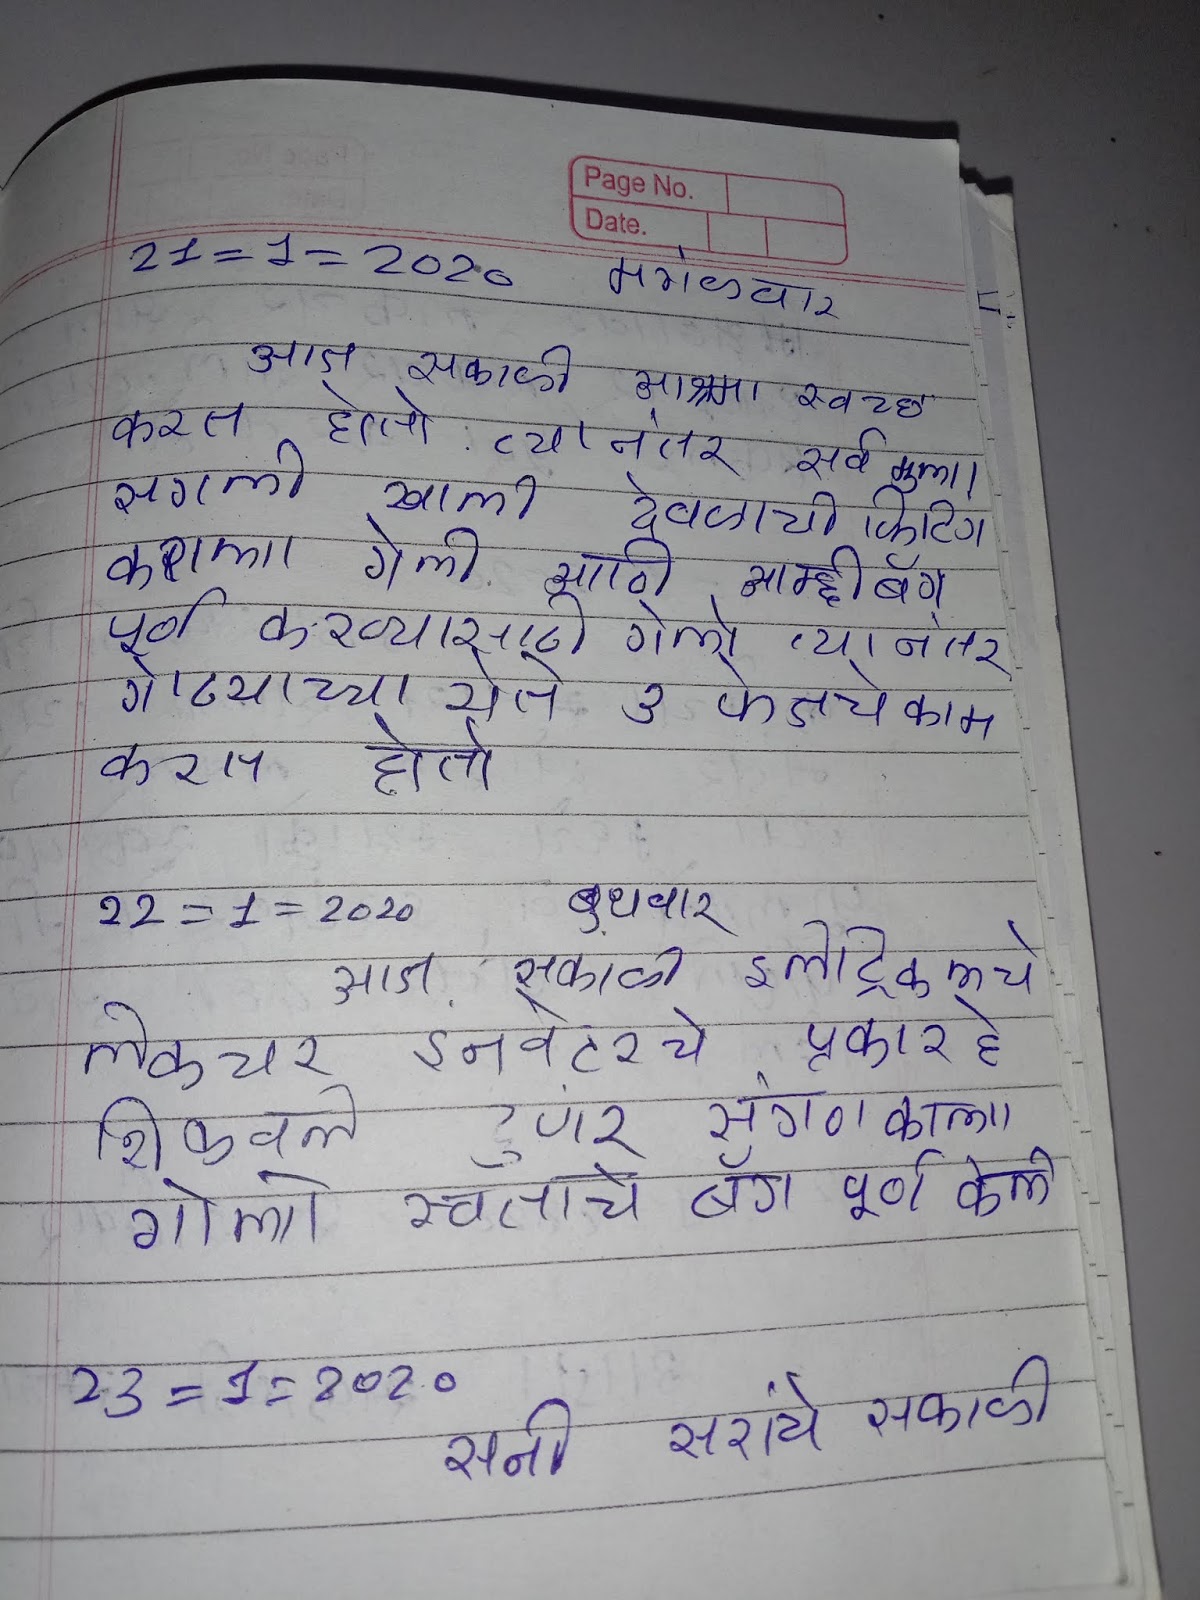 Page No.
Date.
21=1=2020 मगंळवार
आज सकाळी आश्रमा स्वच्छ
करत होतो त्यानंतर सर्व मुला
सगली खाली देवळाची फिटिंग
कराला गेली आणि आम्ही बॅग
पूर्ण करण्यासाठी गेलो त्यानंतर
गोठ्याच्या येते 3 फेजचे काम
करत होतो
22=1=2020 बुधवार
आज सकाळी इलेट्रिकलचे
लेकचर इनवेटरचे प्रकार हे
शिकवले दुपार संगणकाला
गेलो स्वताचे बॅग पूर्ण केले
23=1=2020
सनी सरांचे सकाळी